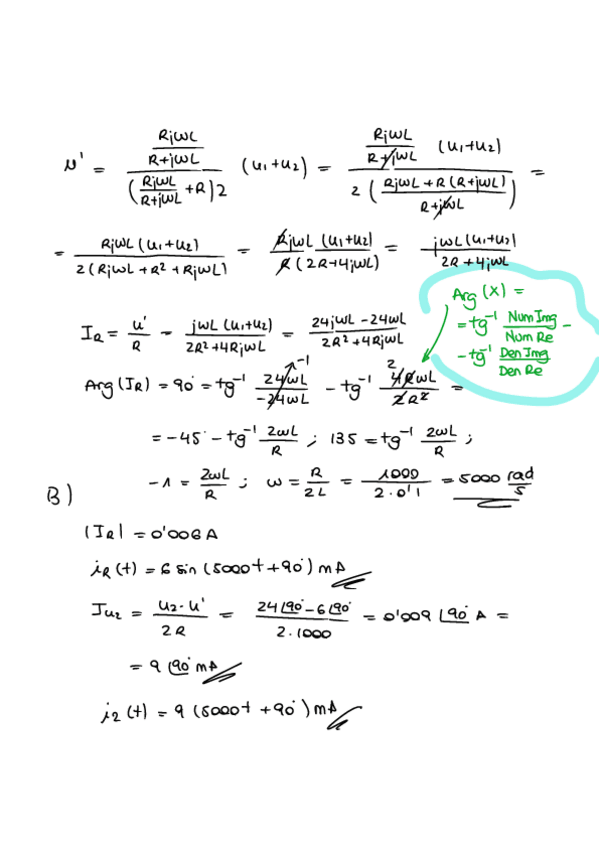 u' = \frac{\frac{RjωL}{R+jωL}}{(\frac{RjωL}{R+jωL}+R)2} (u₁+u₂) = \frac{\frac{RjωL}{R+jωL} (u₁+u₂)}{2(\frac{RjωL+R(R+jωL)}{R+jωL})} =
= \frac{RjωL(u₁+u₂)}{2(RjωL+R²+RjωL)} = \frac{RjωL(u₁+u₂)}{R(2R+4jωL)} = \frac{jωL(u₁+u₂)}{2R+4jωL}
Arg(X) =
= tg⁻¹ \frac{Num Img}{Num Re} -
- tg⁻¹ \frac{Den Img}{Den Re}
I_R = \frac{u'}{R} = \frac{jωL(u₁+u₂)}{2R²+4RjωL} = \frac{24jωL-24ωL}{2R²+4RjωL}
Arg(I_R) = 90° = tg⁻¹ \frac{24ωL}{-24ωL} -1 - tg⁻¹ \frac{4RωL}{2R²} 2 =
= -45° - tg⁻¹ \frac{2ωL}{R} ; 135 = tg⁻¹ \frac{2ωL}{R} ;
-1 = \frac{2ωL}{R} ; ω = \frac{R}{2L} = \frac{1000}{2·0'1} = 5000 \frac{rad}{s}
B)
|I_R| = 0'006A
i_R(t) = 6 sin(5000t+90°)mA
I_{u2} = \frac{u₂-u'}{2R} = \frac{24∠90°-6∠90°}{2·1000} = 0'009∠90° A =
= 9∠90° mA
i₂(t) = 9(5000t+90°)mA